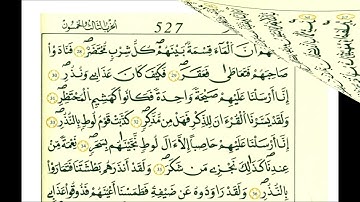 الحزب الثالث والخمسون 527
ونبئهم أن الماء قسمة بينهم كل شرب محتضر 28 فنادوا
صاحبهم فتعاطى فعقر 29 فكيف كان عذابى ونذر 30
إنا أرسلنا عليهم صيحة واحدة فكانوا كهشيم المحتظر 31
ولقد يسرنا القرءان للذكر فهل من مدكر 32 كذبت قوم لوط بالنذر 33
إنا أرسلنا عليهم حاصبا إلا ءال لوط نجينهم بسحر 34 نعمة من
عندنا كذلك نجزى من شكر 35 ولقد أنذرهم بطشتنا فتماروا
بالنذر 36 ولقد راودوه عن ضيفه فطمسنا أعينهم فذوقوا عذابى